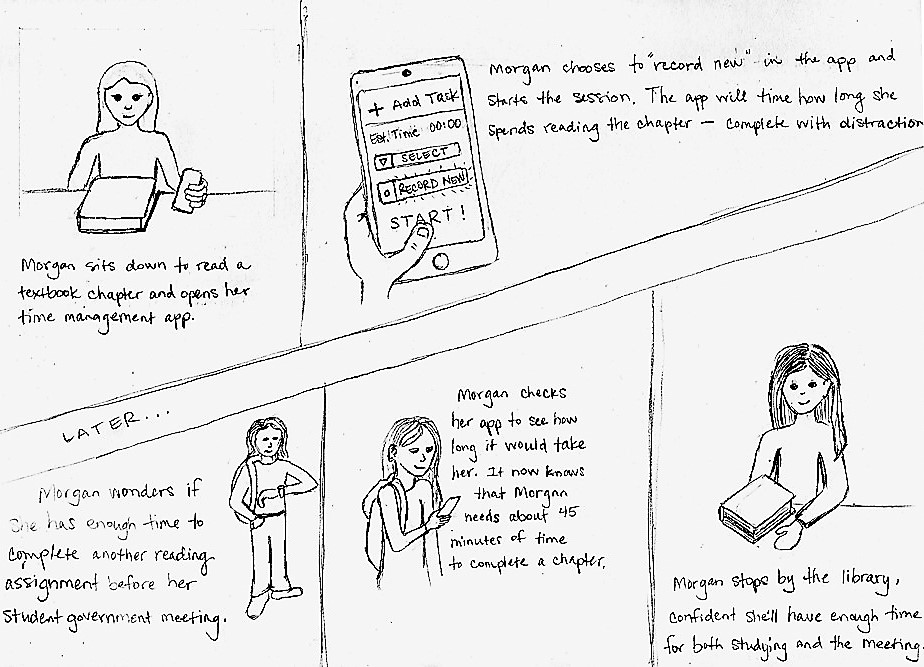 Morgan sits down to read a
textbook chapter and opens her
time management app.
+ Add Task
Est. Time 00:00
SELECT
RECORD NEW
START!
Morgan chooses to "record new" in the app and
starts the session. The app will time how long she
spends reading the chapter — complete with distraction
LATER...
Morgan wonders if
she has enough time to
complete another reading
assignment before her
student government meeting.
Morgan checks
her app to see how
long it would take
her. It now knows
that Morgan
needs about 45
minutes of time
to complete a chapter.
Morgan stops by the library,
confident she'll have enough time
for both studying and the meeting